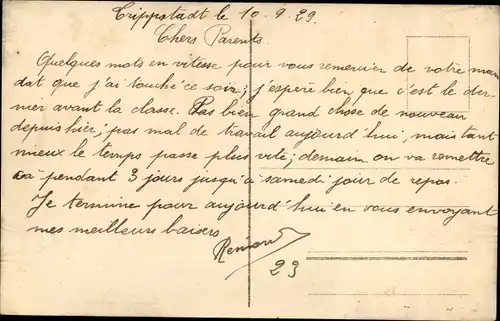 Trippstadt le 10-9-29.
Chers Parents.
Quelques mots en vitesse pour vous remercier de votre man
dat que j'ai touché ce soir; j'espère bien que c'est le der-
nier avant la classe. Pas bien grand chose de nouveau
depuis hier; pas mal de travail aujourd'hui, mais tant
mieux le temps passe plus vite; demain on va remettre
ça pendant 3 jours jusqu'à samedi jour de repos.
Je termine pour aujourd'hui en vous envoyant
mes meilleurs baisers
29